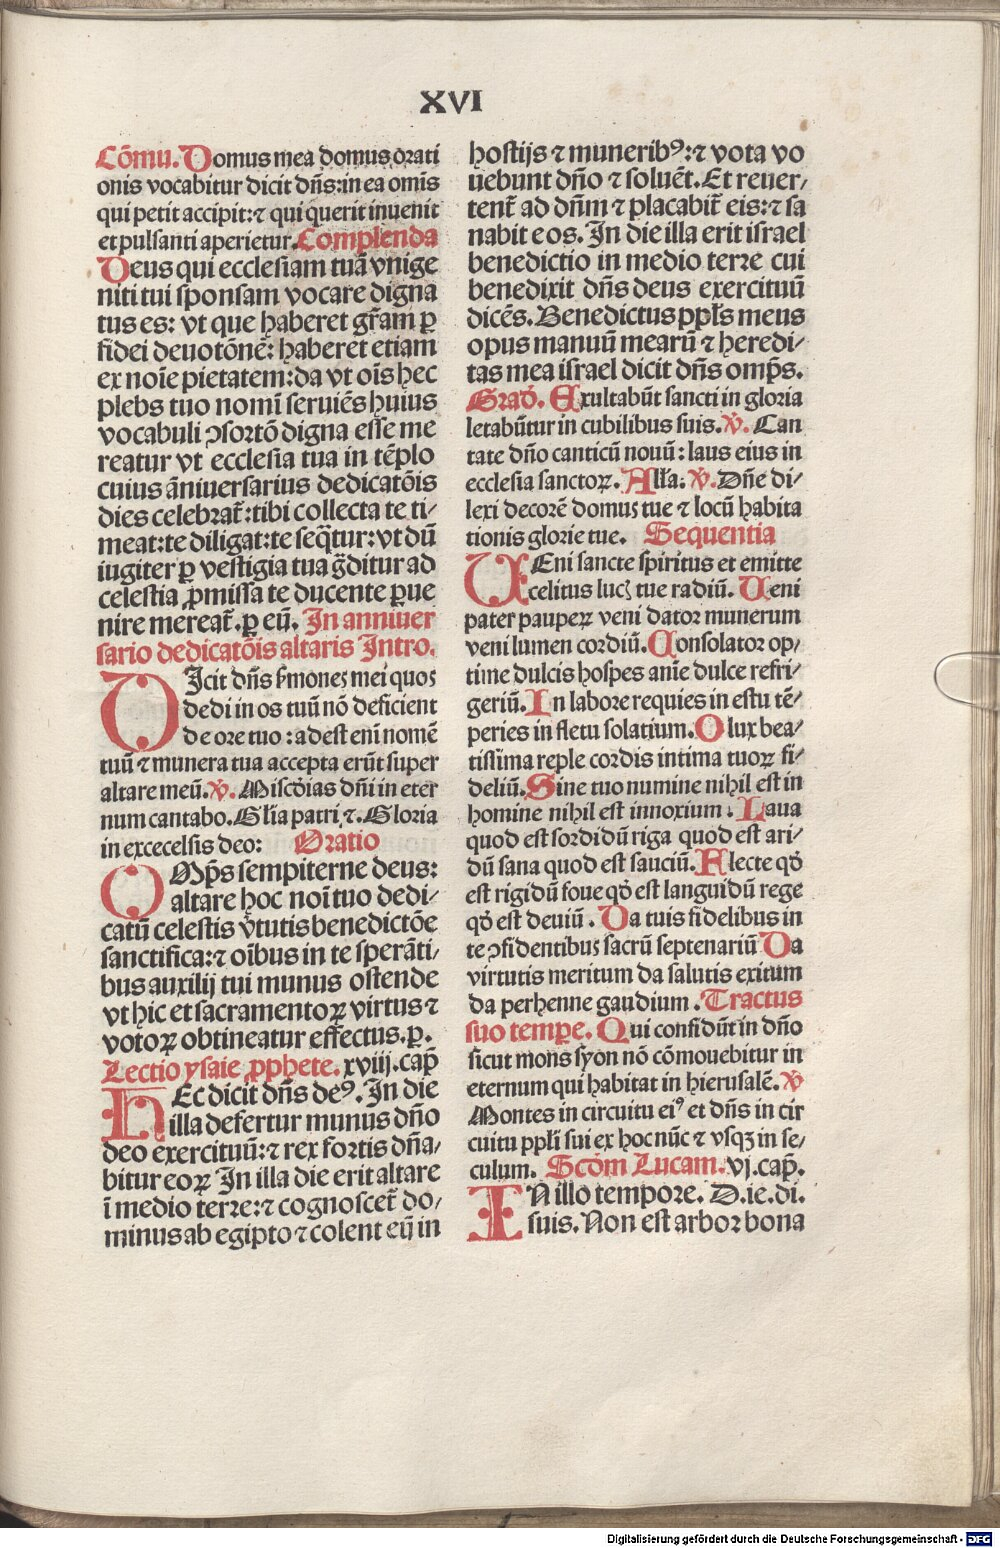 XVI
Cōmu. Domus mea domus orati
onis vocabitur dicit dn̄s: in ea omīs
qui petit accipit: ⁊ qui querit inuenit
et pulsanti aperietur. Complenda
Deus qui ecclesiam tuā vnige
niti tui sponsam vocare digna
tus es: vt que haberet gr̄am ꝑ
fidei deuotōnē: haberet etiam
ex noīe pietatem: da vt oīs hec
plebs tuo nomī seruiēs huius
vocabuli ꝯsortō digna esse me
reatur vt ecclesia tua in tēplo
cuius āniuersarius dedicatōis
dies celebrat᷑: tibi collecta te ti⸗
meat: te diligat: te seq̄tur: vt dū
iugiter ꝑ vestigia tua gͣditur ad
celestia ꝓmissa te ducente ꝑue
nire mereat᷑. ꝑ eū. In anniuer
sario dedicatōis altaris Intro.
DIcit dn̄s s̄mones mei quos
dedi in os tuū nō deficient
de ore tuo: adest enī nomē
tuū ⁊ munera tua accepta erūt super
altare meū. ℣. Misc̄dias dn̄i in eter
num cantabo. Gl̄ia patri ⁊. Gloria
in excecelsis deo: Oratio
OMp̄s sempiterne deus:
altare hoc noī tuo dedi⸗
catū celestis v̄tutis benedictōe
sanctifica: ⁊ oībus in te sperāti⸗
bus auxilij tui munus ostende
vt hic et sacramentoꝝ virtus ⁊
votoꝝ obtineatur effectus. ꝑ.
Lectio ysaie ꝓphete. xviij. cap̄
HEc dicit dn̄s deꝰ. In die
illa defertur munus dn̄o
deo exercituū: ⁊ rex fortis dn̄a⸗
bitur eoꝝ In illa die erit altare
ī medio terre: ⁊ cognoscet᷑ do⸗
minus ab egipto ⁊ colent eū in
hostijs ⁊ muneribꝰ: ⁊ vota vo
uebunt dn̄o ⁊ soluēt. Et reuer⸗
tent᷑ ad dn̄m ⁊ placabit᷑ eis: ⁊ sa
nabit eos. In die illa erit israel
benedictio in medio terre cui
benedixit dn̄s deus exercituū
dicēs. Benedictus ppl̄s meus
opus manuū mearū ⁊ heredi⸗
tas mea israel dicit dn̄s omp̄s.
Grad̄. Exultabūt sancti in gloria
letabūtur in cubilibus suis. ℣. Can
tate dn̄o canticū nouū: laus eius in
ecclesia sanctoꝝ. All̄a. ℣. Dn̄e di⸗
lexi decorē domus tue ⁊ locū habita
tionis glorie tue. Sequentia
UEni sancte spiritus et emitte
celitus lucꝭ tue radiū. Ueni
pater pauperꝝ veni dator munerum
veni lumen cordiū. Consolator op⸗
time dulcis hospes anīe dulce refri⸗
geriū. In labore requies in estu tē⸗
peries in fletu solatium. O lux bea⸗
tissima reple cordis intima tuoꝝ fi⸗
deliū. Sine tuo numine nihil est in
homine nihil est innoxium. Laua
quod est sordidū riga quod est ari⸗
dū sana quod est sauciū. Flecte qd̄
est rigidū foue qd̄ est languidū rege
qd̄ est deuiū. Da tuis fidelibus in
te ꝯfidentibus sacrū septenariū Da
virtutis meritum da salutis exitum
da perhenne gaudium. Tractus
suo tempe. Qui confidūt in dn̄o
sicut mons syon nō cōmouebitur in
eternum qui habitat in hierusalē. ℣
Montes in circuitu eiꝰ et dn̄s in cir
cuitu ppl̄i sui ex hoc nūc ⁊ vsqꝫ in se⸗
culum. Scd̄m Lucam. vj. cap̄.
IN illo tempore. D. ie. di.
suis. Non est arbor bona
Digitalisierung gefördert durch die Deutsche Forschungsgemeinschaft - DFG